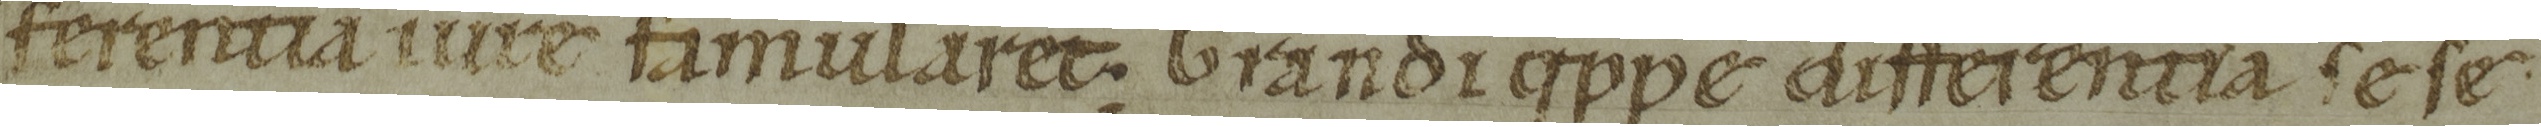 ferentia iure famularet. brandi qppe differentia sese